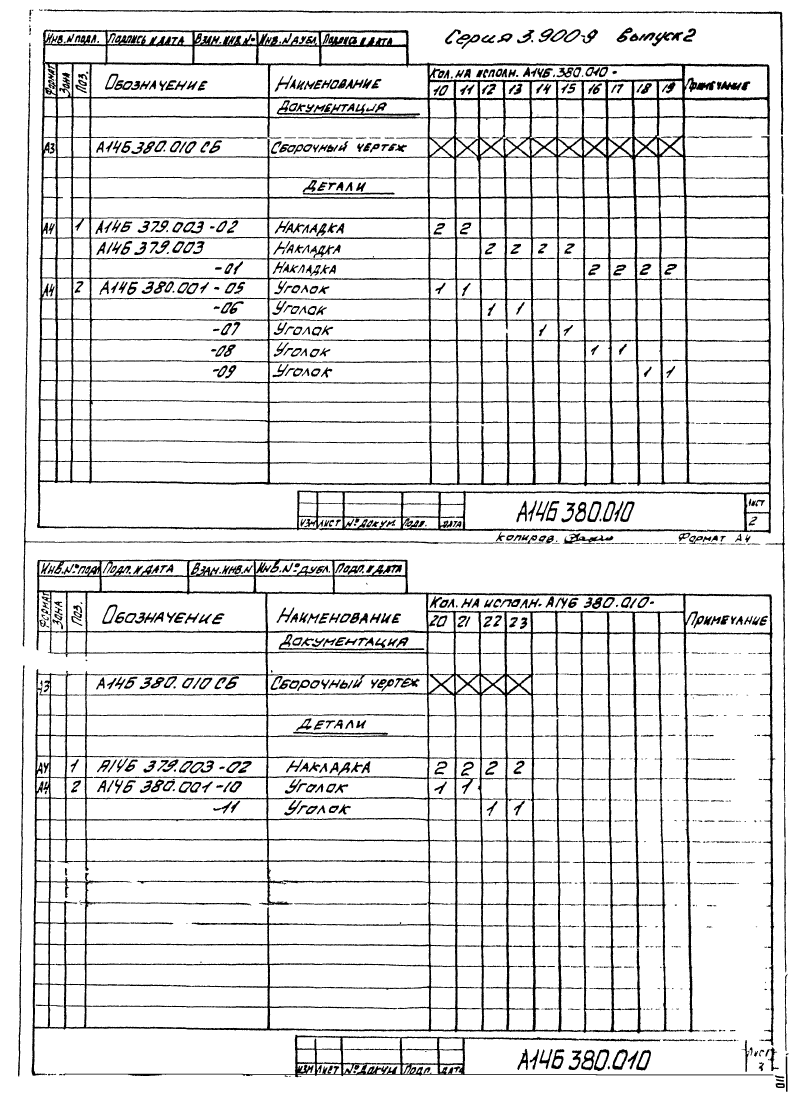 Серия 3.900-9 Выпуск 2
Инв.N подл. Подпись и дата Взам.инв.№ Инв.N дубл. Подпись и дата
Формат Зона Поз. Обозначение Наименование Кол. на исполн. А14Б.380.010- Примечание
10 11 12 13 14 15 16 17 18 19
Документация
А3 А14Б380.010 СБ Сборочный чертеж
Детали
А4 1 А14Б 379.003-02 Накладка 2 2
А14Б 379.003 Накладка 2 2 2 2
-01 Накладка 2 2 2 2
А4 2 А14Б 380.001-05 Уголок 1 1
-06 Уголок 1 1
-07 Уголок 1 1
-08 Уголок 1 1
-09 Уголок 1 1
Изм Лист № докум. Подп. Дата А14Б 380.010 Лист 2
Копиров. Формат А4
Инв.№ подл Подп. и дата Взам.инв.N Инв.№ дубл. Подп. и дата
Формат Зона Поз. Обозначение Наименование Кол. на исполн. А14Б 380.010- Примечание
20 21 22 23
Документация
А3 А14Б 380.010 СБ Сборочный чертеж
Детали
А4 1 А14Б 379.003-02 Накладка 2 2 2 2
А4 2 А14Б 380.001-10 Уголок 1 1
-11 Уголок 1 1
Изм Лист № докум Подп. Дата А14Б 380.010 Лист 3